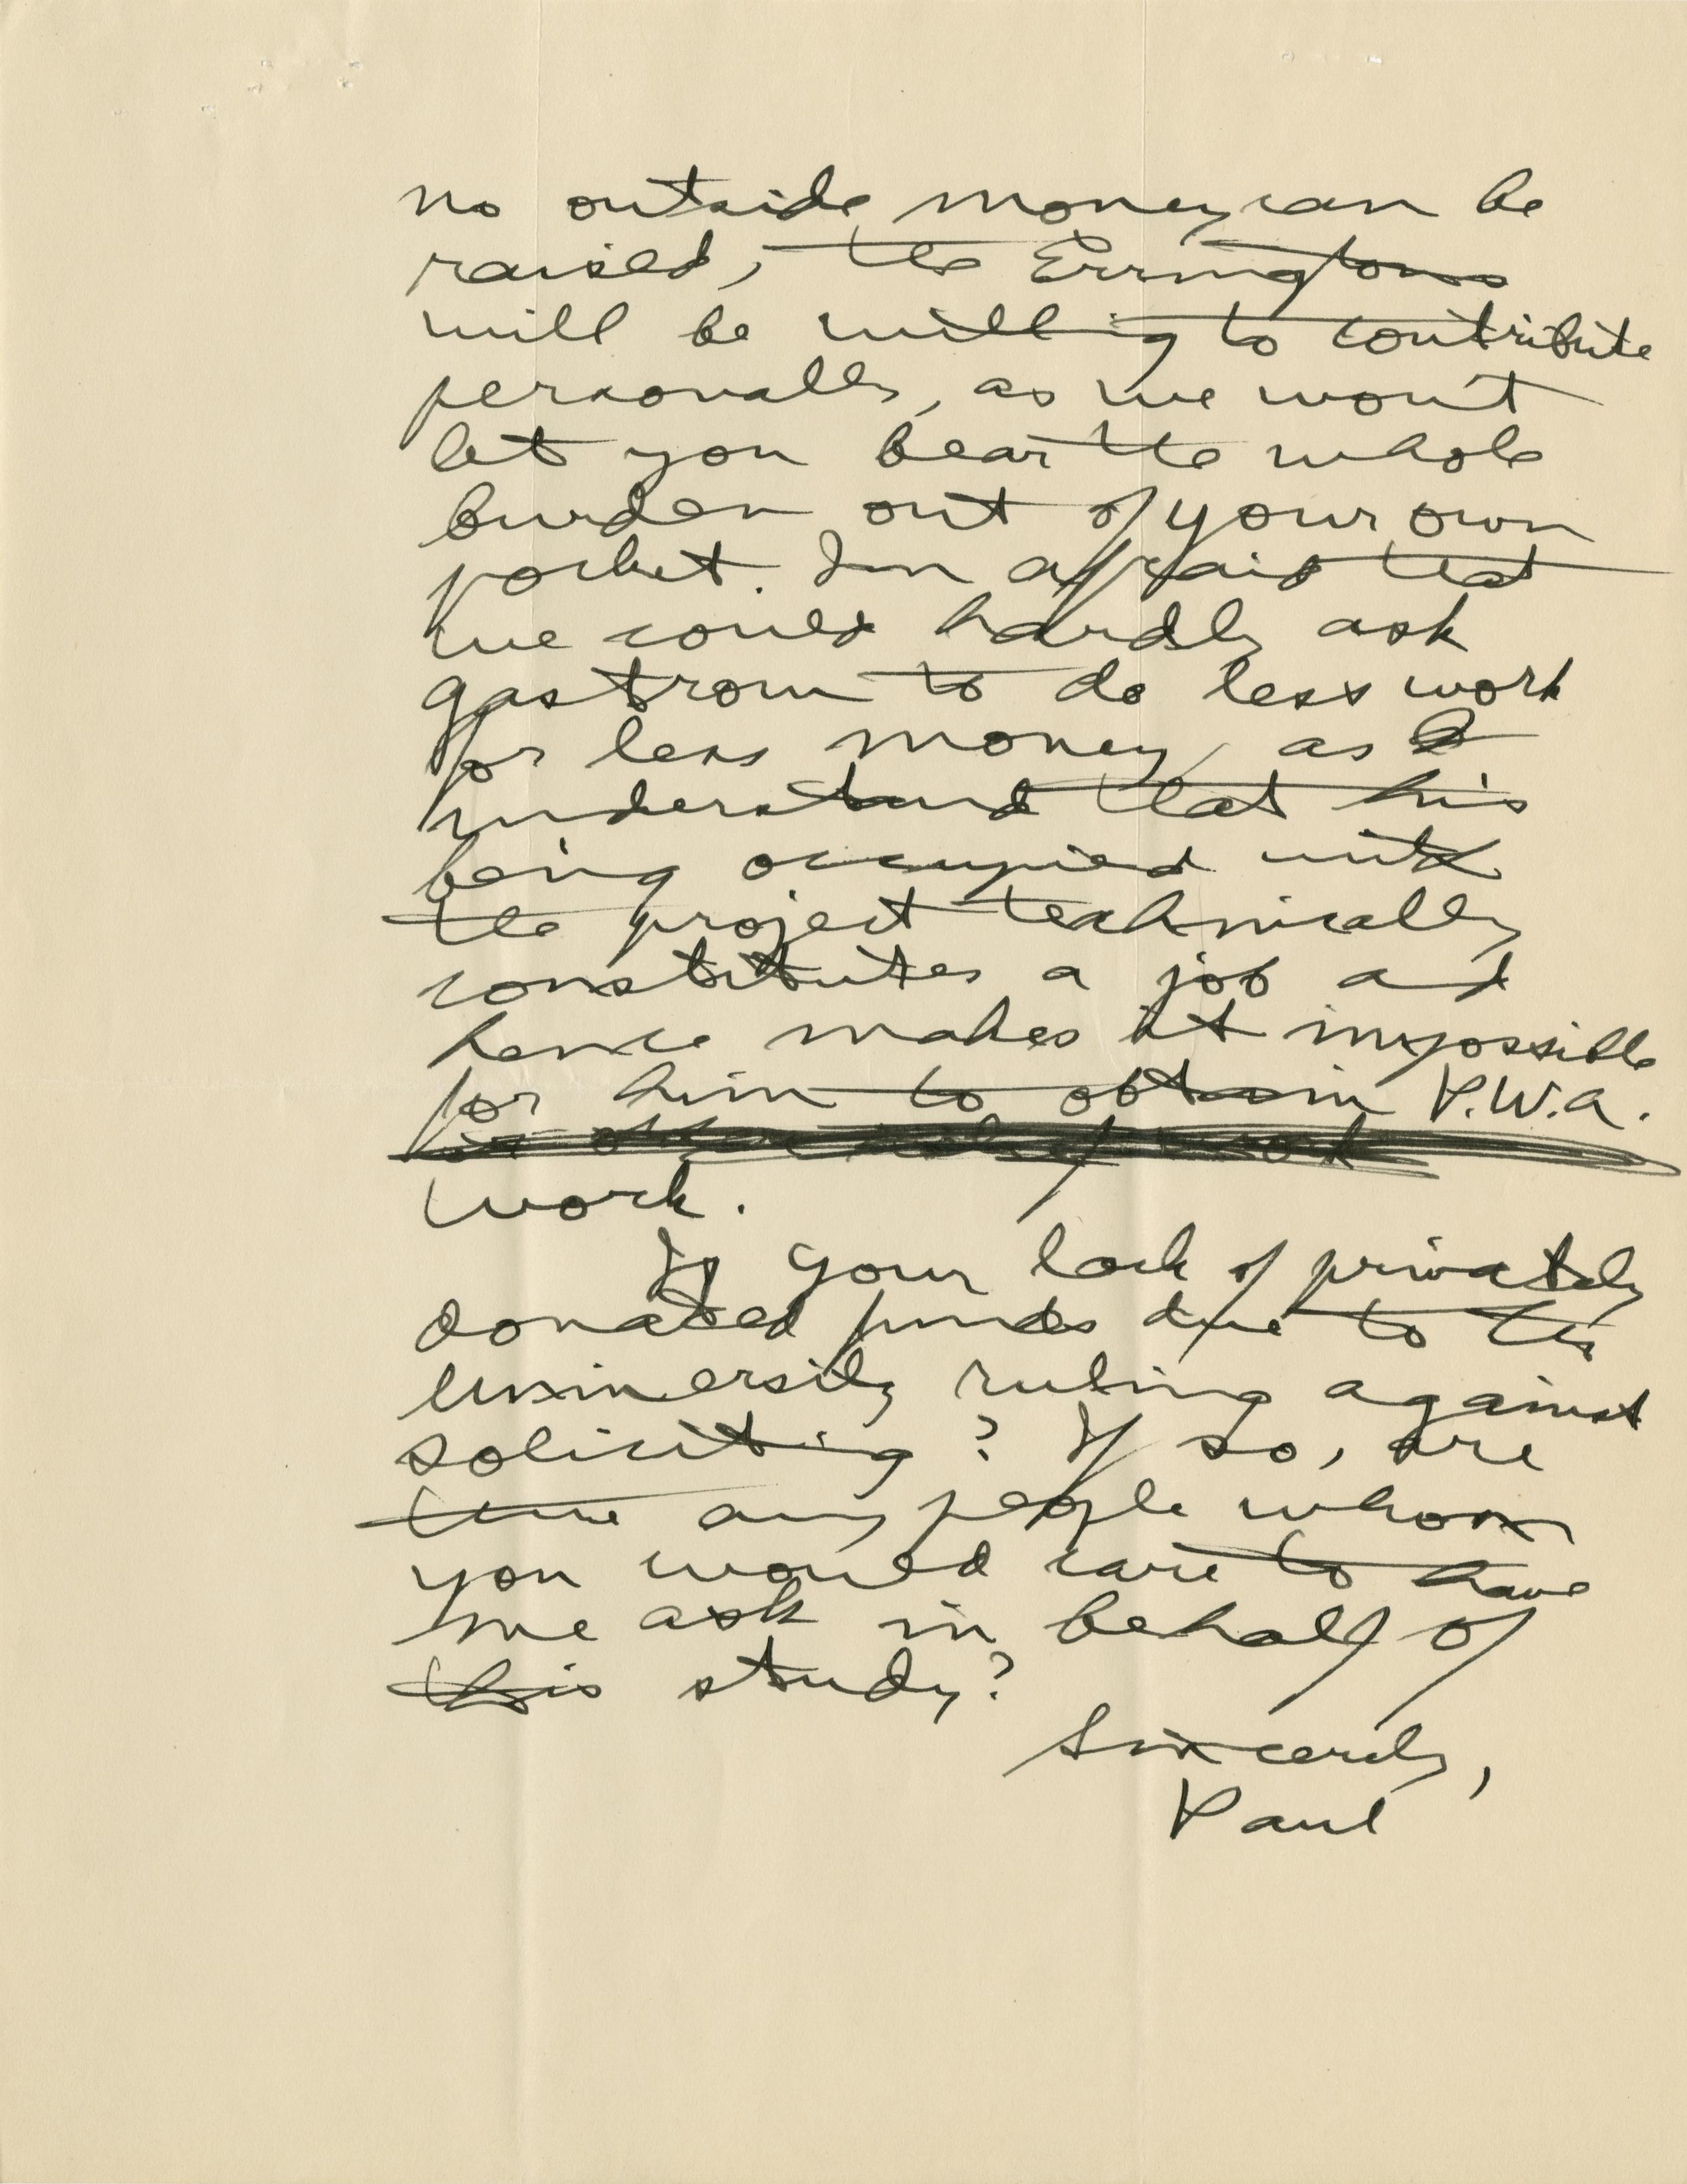 no outside money can be
raised, the Erringtons
will be willing to contribute
personally, as we won't
let you bear the whole
burden out of your own
pocket. I'm afraid that
we could hardly ask
Gastrow to do less work
for less money, as I
understand that his
being occupied with
the project technically
constitutes a job and
hence makes it impossible
for him to obtain P.W.A.
work.
Is your lack of privately
donated funds due to the
University ruling against
soliciting? If so, are
there any people whom
you would care to have
me ask in behalf of
this study?
Sincerely,
Paul